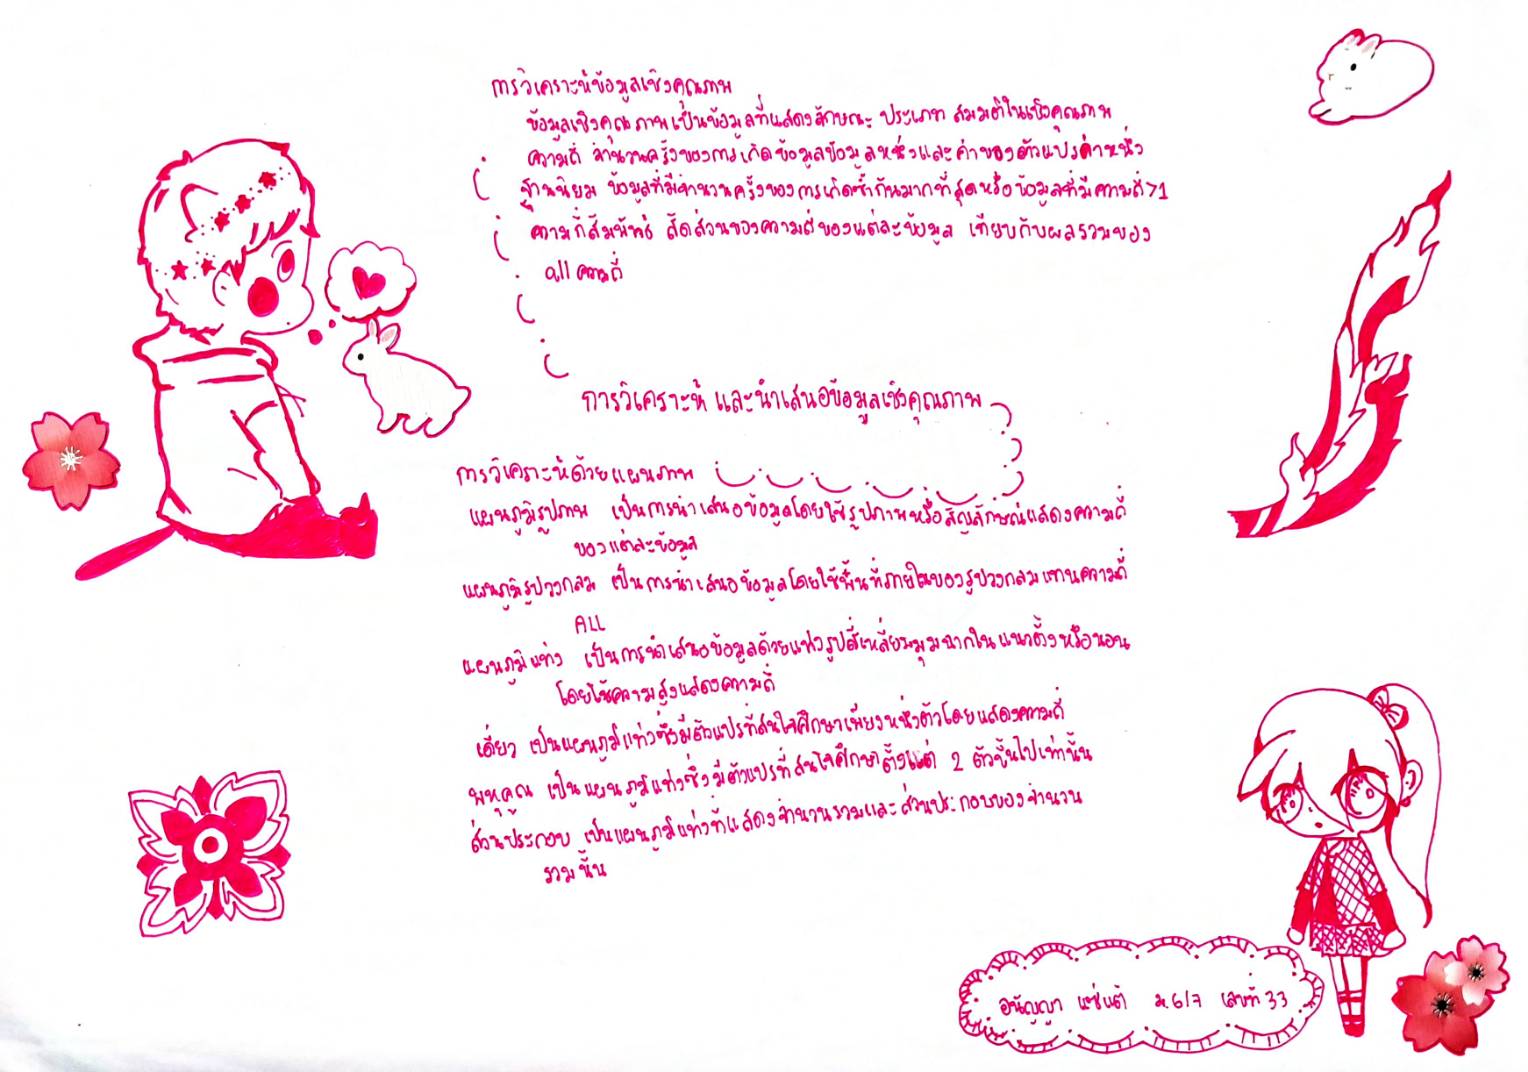 การวิเคราะห์ข้อมูลเชิงคุณภาพ
ข้อมูลเชิงคุณภาพเป็นข้อมูลที่แสดงลักษณะ ประเภท สมบัติในเชิงคุณภาพ
ความถี่ จำนวนครั้งของการเกิดข้อมูลข้อมูลหนึ่งและค่าของตัวแปรค่าหนึ่ง
ฐานนิยม ข้อมูลที่มีจำนวนครั้งของการเกิดซ้ำกันมากที่สุดหรือข้อมูลที่มีความถี่>1
ความถี่สัมพัทธ์ สัดส่วนของความถี่ของแต่ละข้อมูล เทียบกับผลรวมของ
all ความถี่
การวิเคราะห์ และนำเสนอข้อมูลเชิงคุณภาพ
การวิเคราะห์ด้วยแผนภาพ
แผนภูมิรูปภาพ เป็นการนำเสนอข้อมูลโดยใช้รูปภาพหรือสัญลักษณ์แสดงความถี่
ของแต่ละข้อมูล
แผนภูมิรูปวงกลม เป็นการนำเสนอข้อมูลโดยใช้พื้นที่ภายในของรูปวงกลมแทนความถี่
ALL
แผนภูมิแท่ง เป็นการนำเสนอข้อมูลด้วยแท่งรูปสี่เหลี่ยมมุมฉากในแนวตั้งหรือนอน
โดยใช้ความสูงแสดงความถี่
เดี่ยว เป็นแผนภูมิแท่งซึ่งมีตัวแปรที่สนใจศึกษาเพียงหนึ่งตัวโดยแสดงความถี่
พหุคูณ เป็นแผนภูมิแท่งซึ่งมีตัวแปรที่สนใจศึกษาตั้งแต่ 2 ตัวขึ้นไปเท่านั้น
ส่วนประกอบ เป็นแผนภูมิแท่งที่แสดงจำนวนรวมและส่วนประกอบของจำนวน
รวมนั้น
อนัญญา แซ่แต้ ม.6/7 เลขที่ 33